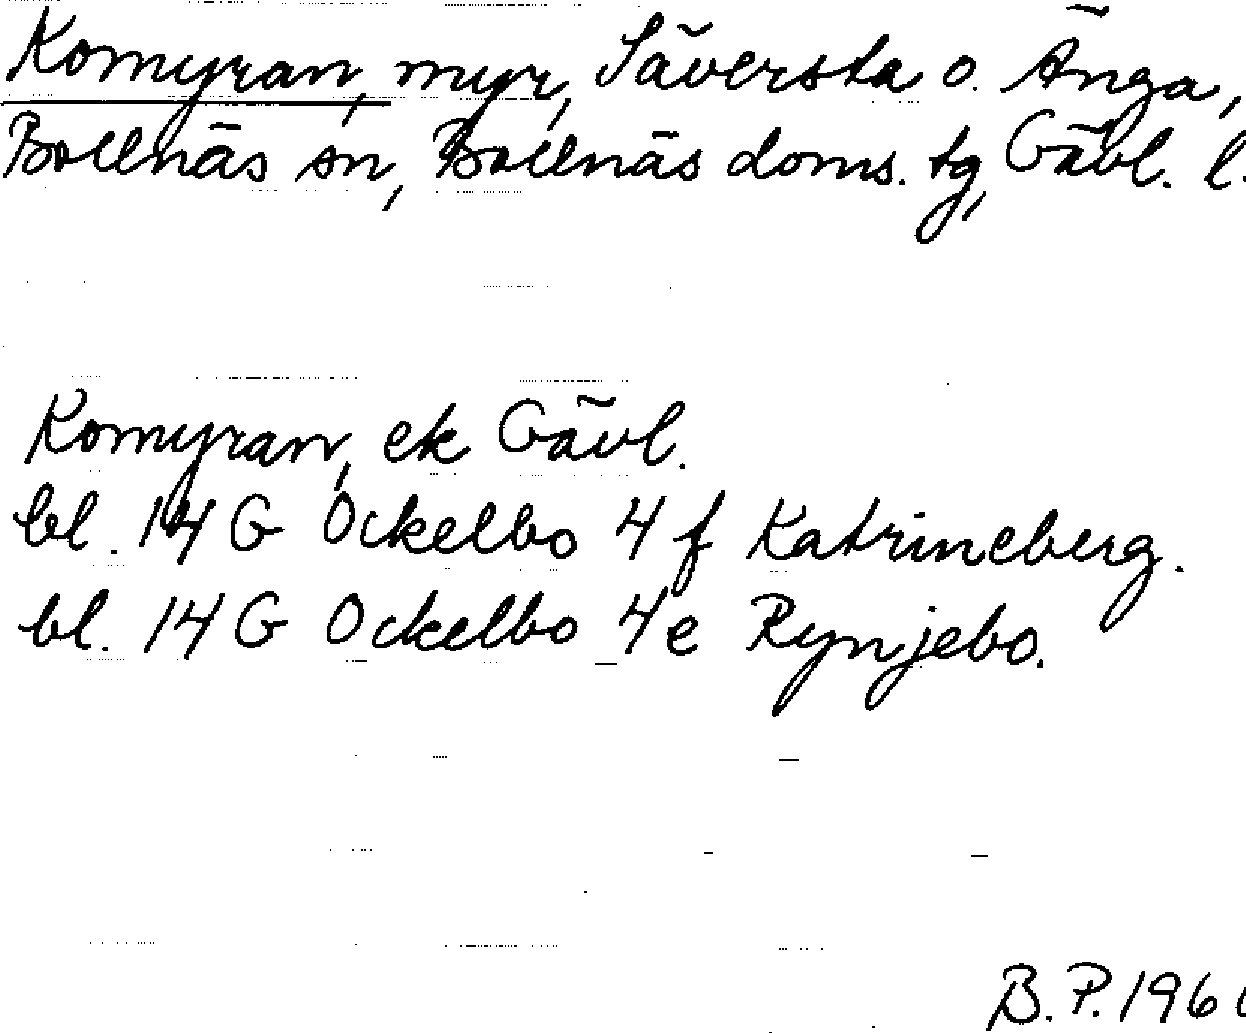 Komyran, myr, Säversta o. Änga,
Bollnäs sn, Bollnäs doms. tg, Gävl. l.
Komyran, ek Gävl.
bl. 14 G Ockelbo 4 f Katrineberg.
bl. 14 G Ockelbo 4e Rynjebo.
B. P.